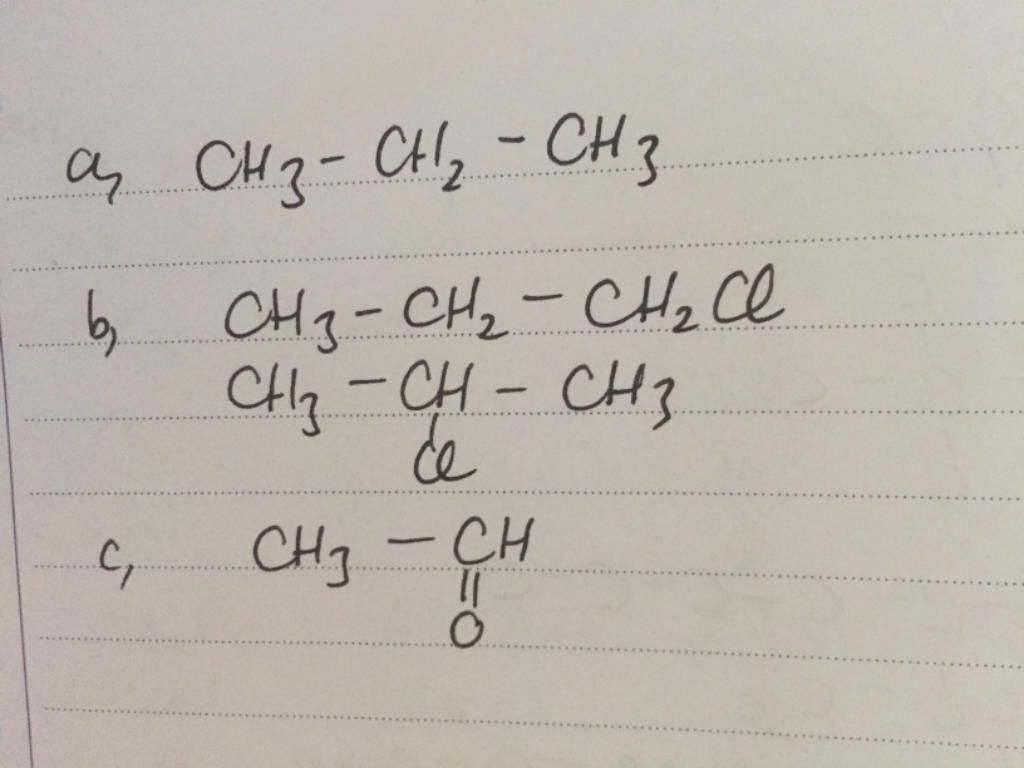 a, CH3 - CH2 - CH3
b, CH3 - CH2 - CH2Cl
CH3 - CH - CH3
Cl
c, CH3 - CH
||
O